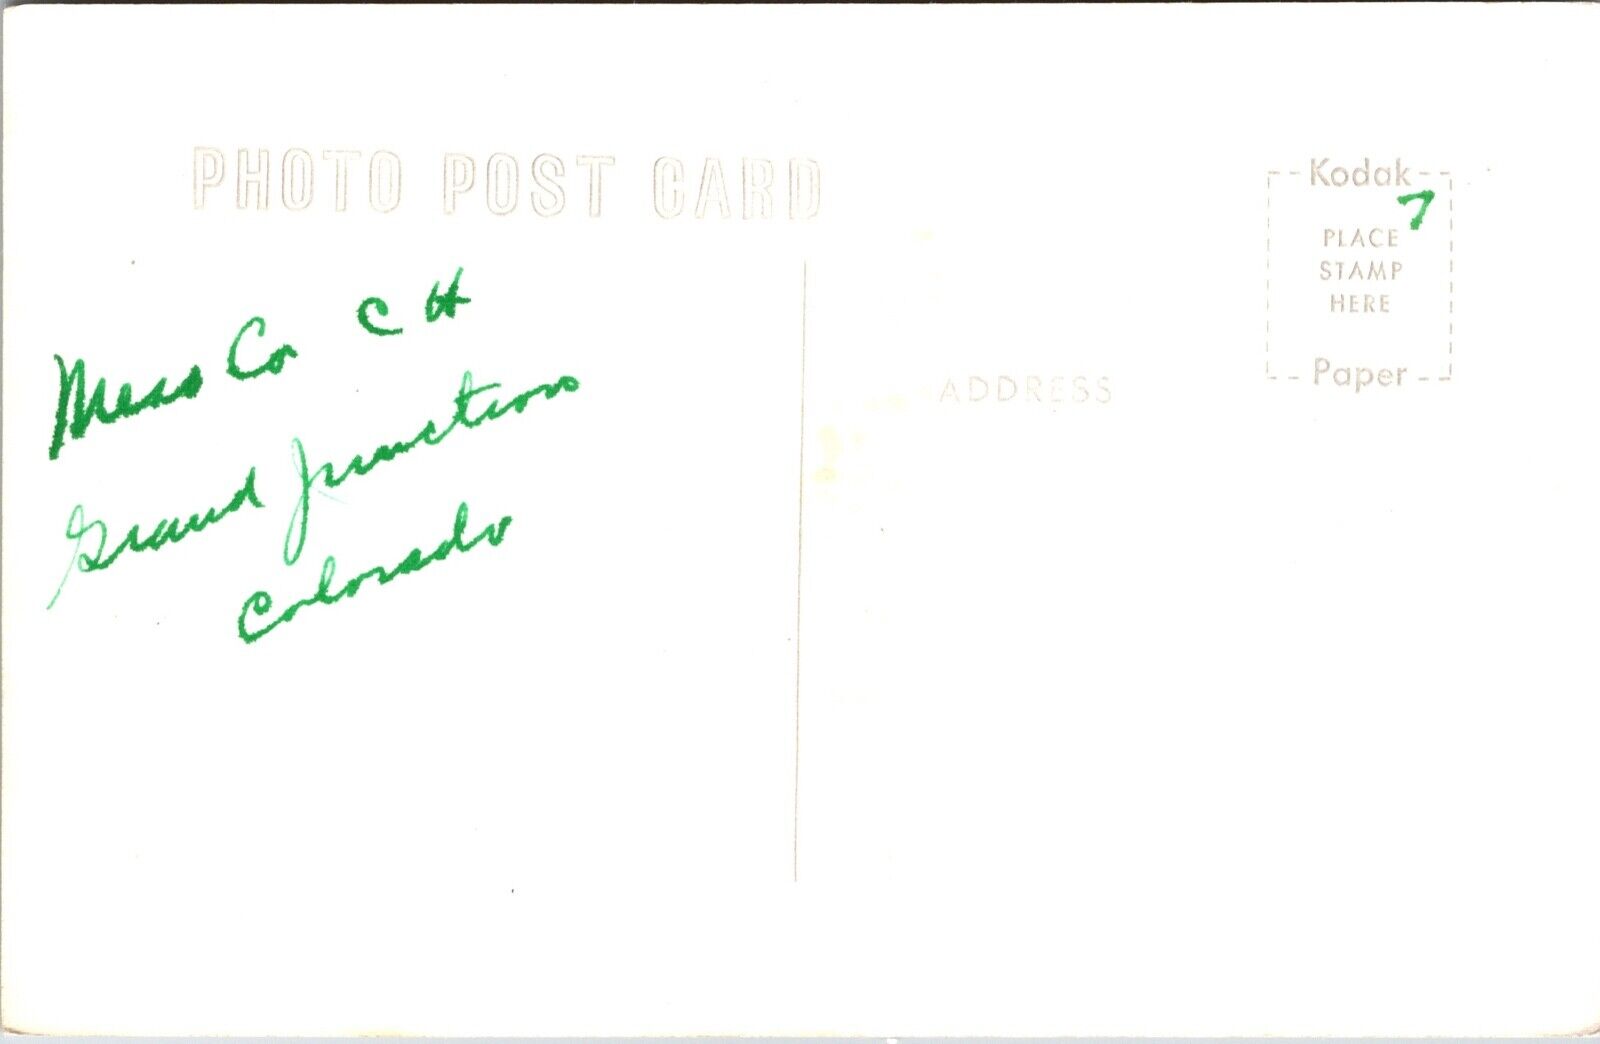 PHOTO POST CARD
Mesa Co C H
Grand Junction
Colorado
ADDRESS
Kodak
7
PLACE
STAMP
HERE
Paper